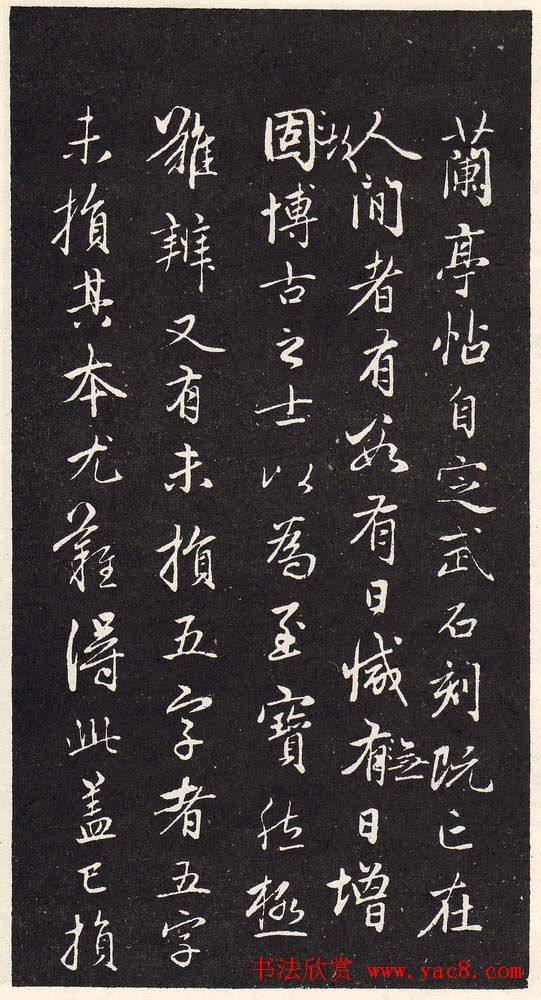 蘭亭帖自定武石刻既亡在
人間者有數有日減有無日增
故
固博古之士以為至寶然極
難辨又有未損五字者五字
未損其本尤難得此蓋已損
书法欣赏 www.yac8.com